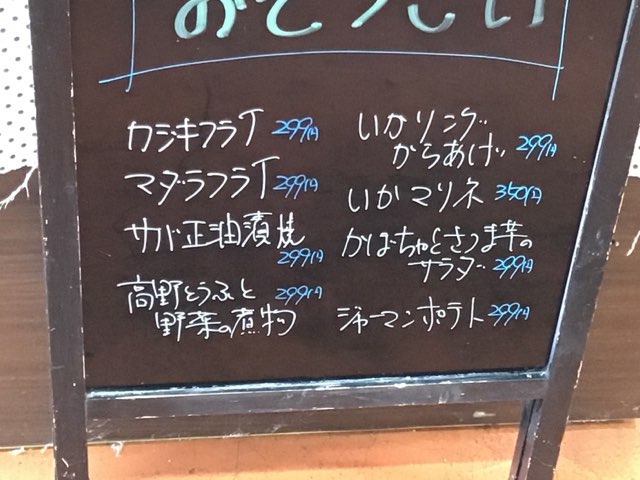 おそうざい
カジキフライ 299円
マダラフライ 299円
サバ正油漬焼
299円
高野とうふと 299円
野菜の煮物
いかリング
からあげ 299円
いかマリネ 350円
かぼちゃとさつま芋の
サラダ 299円
ジャーマンポテト 299円